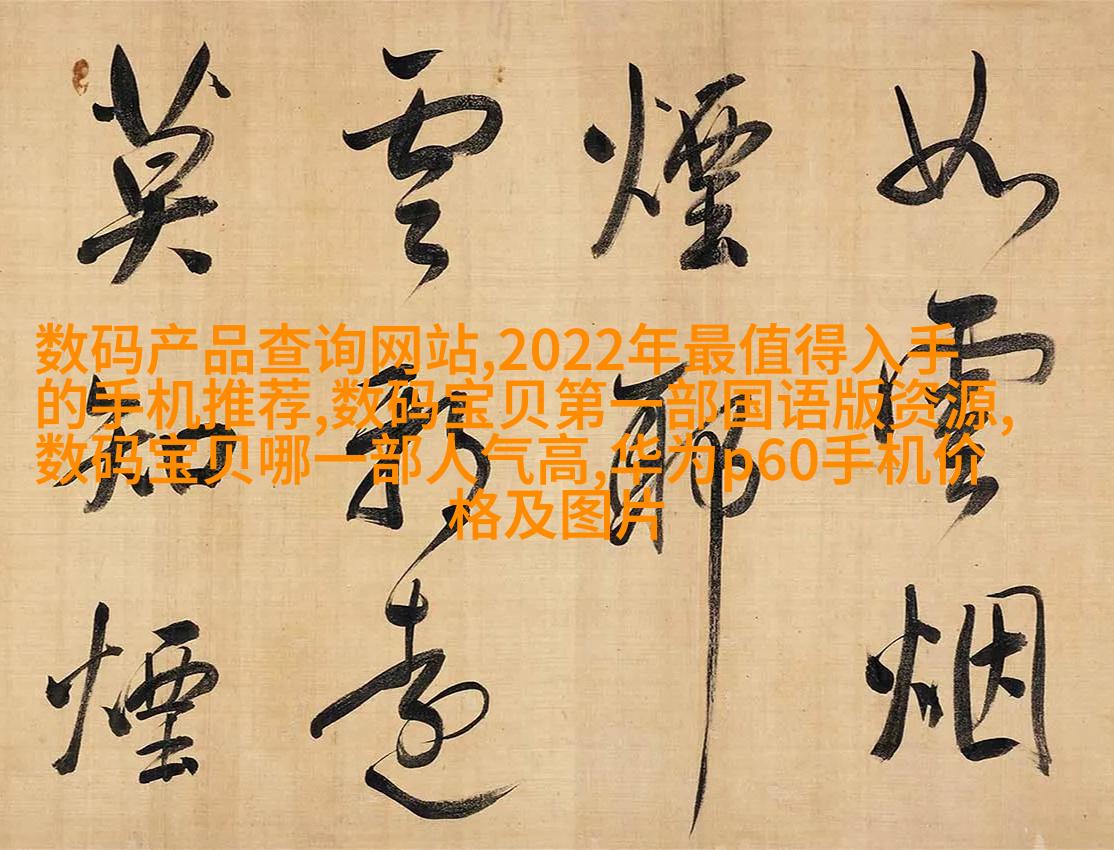 数码产品查询网站,2022年最值得入手
的手机推荐,数码宝贝第一部国语版资源,
数码宝贝哪一部人气高,华为p60手机价
格及图片
如雲烟
煙
雲遠
莫知煙